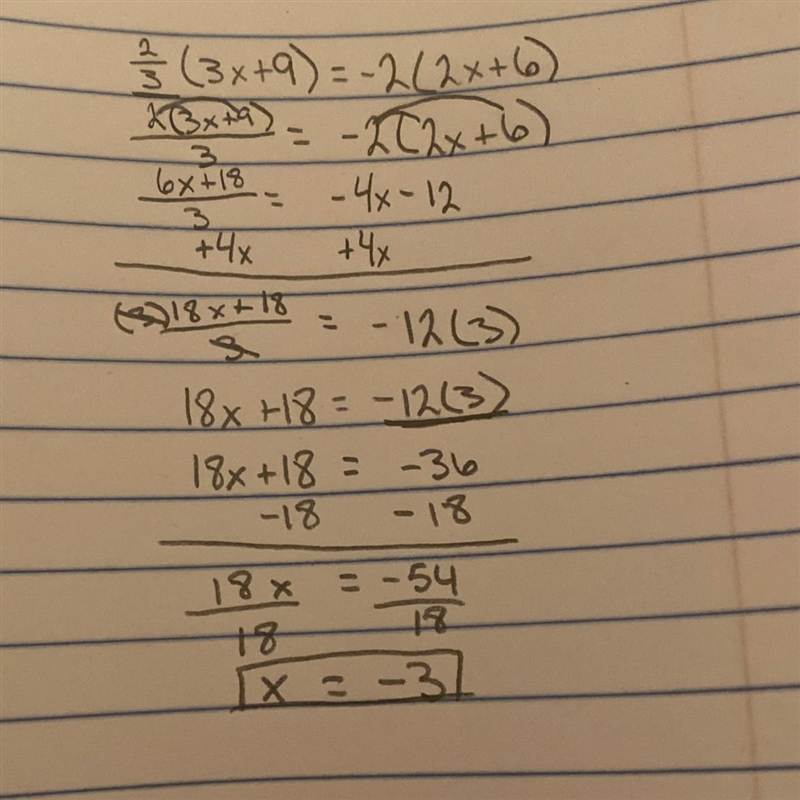 2/3 (3x+9) = -2(2x+6)
2(3x+9)/3 = -2(2x+6)
6x+18/3 = -4x-12
+4x +4x
(3)18x+18/3 = -12(3)
18x+18 = -12(3)
18x+18 = -36
-18 -18
18x/18 = -54/18
x = -3